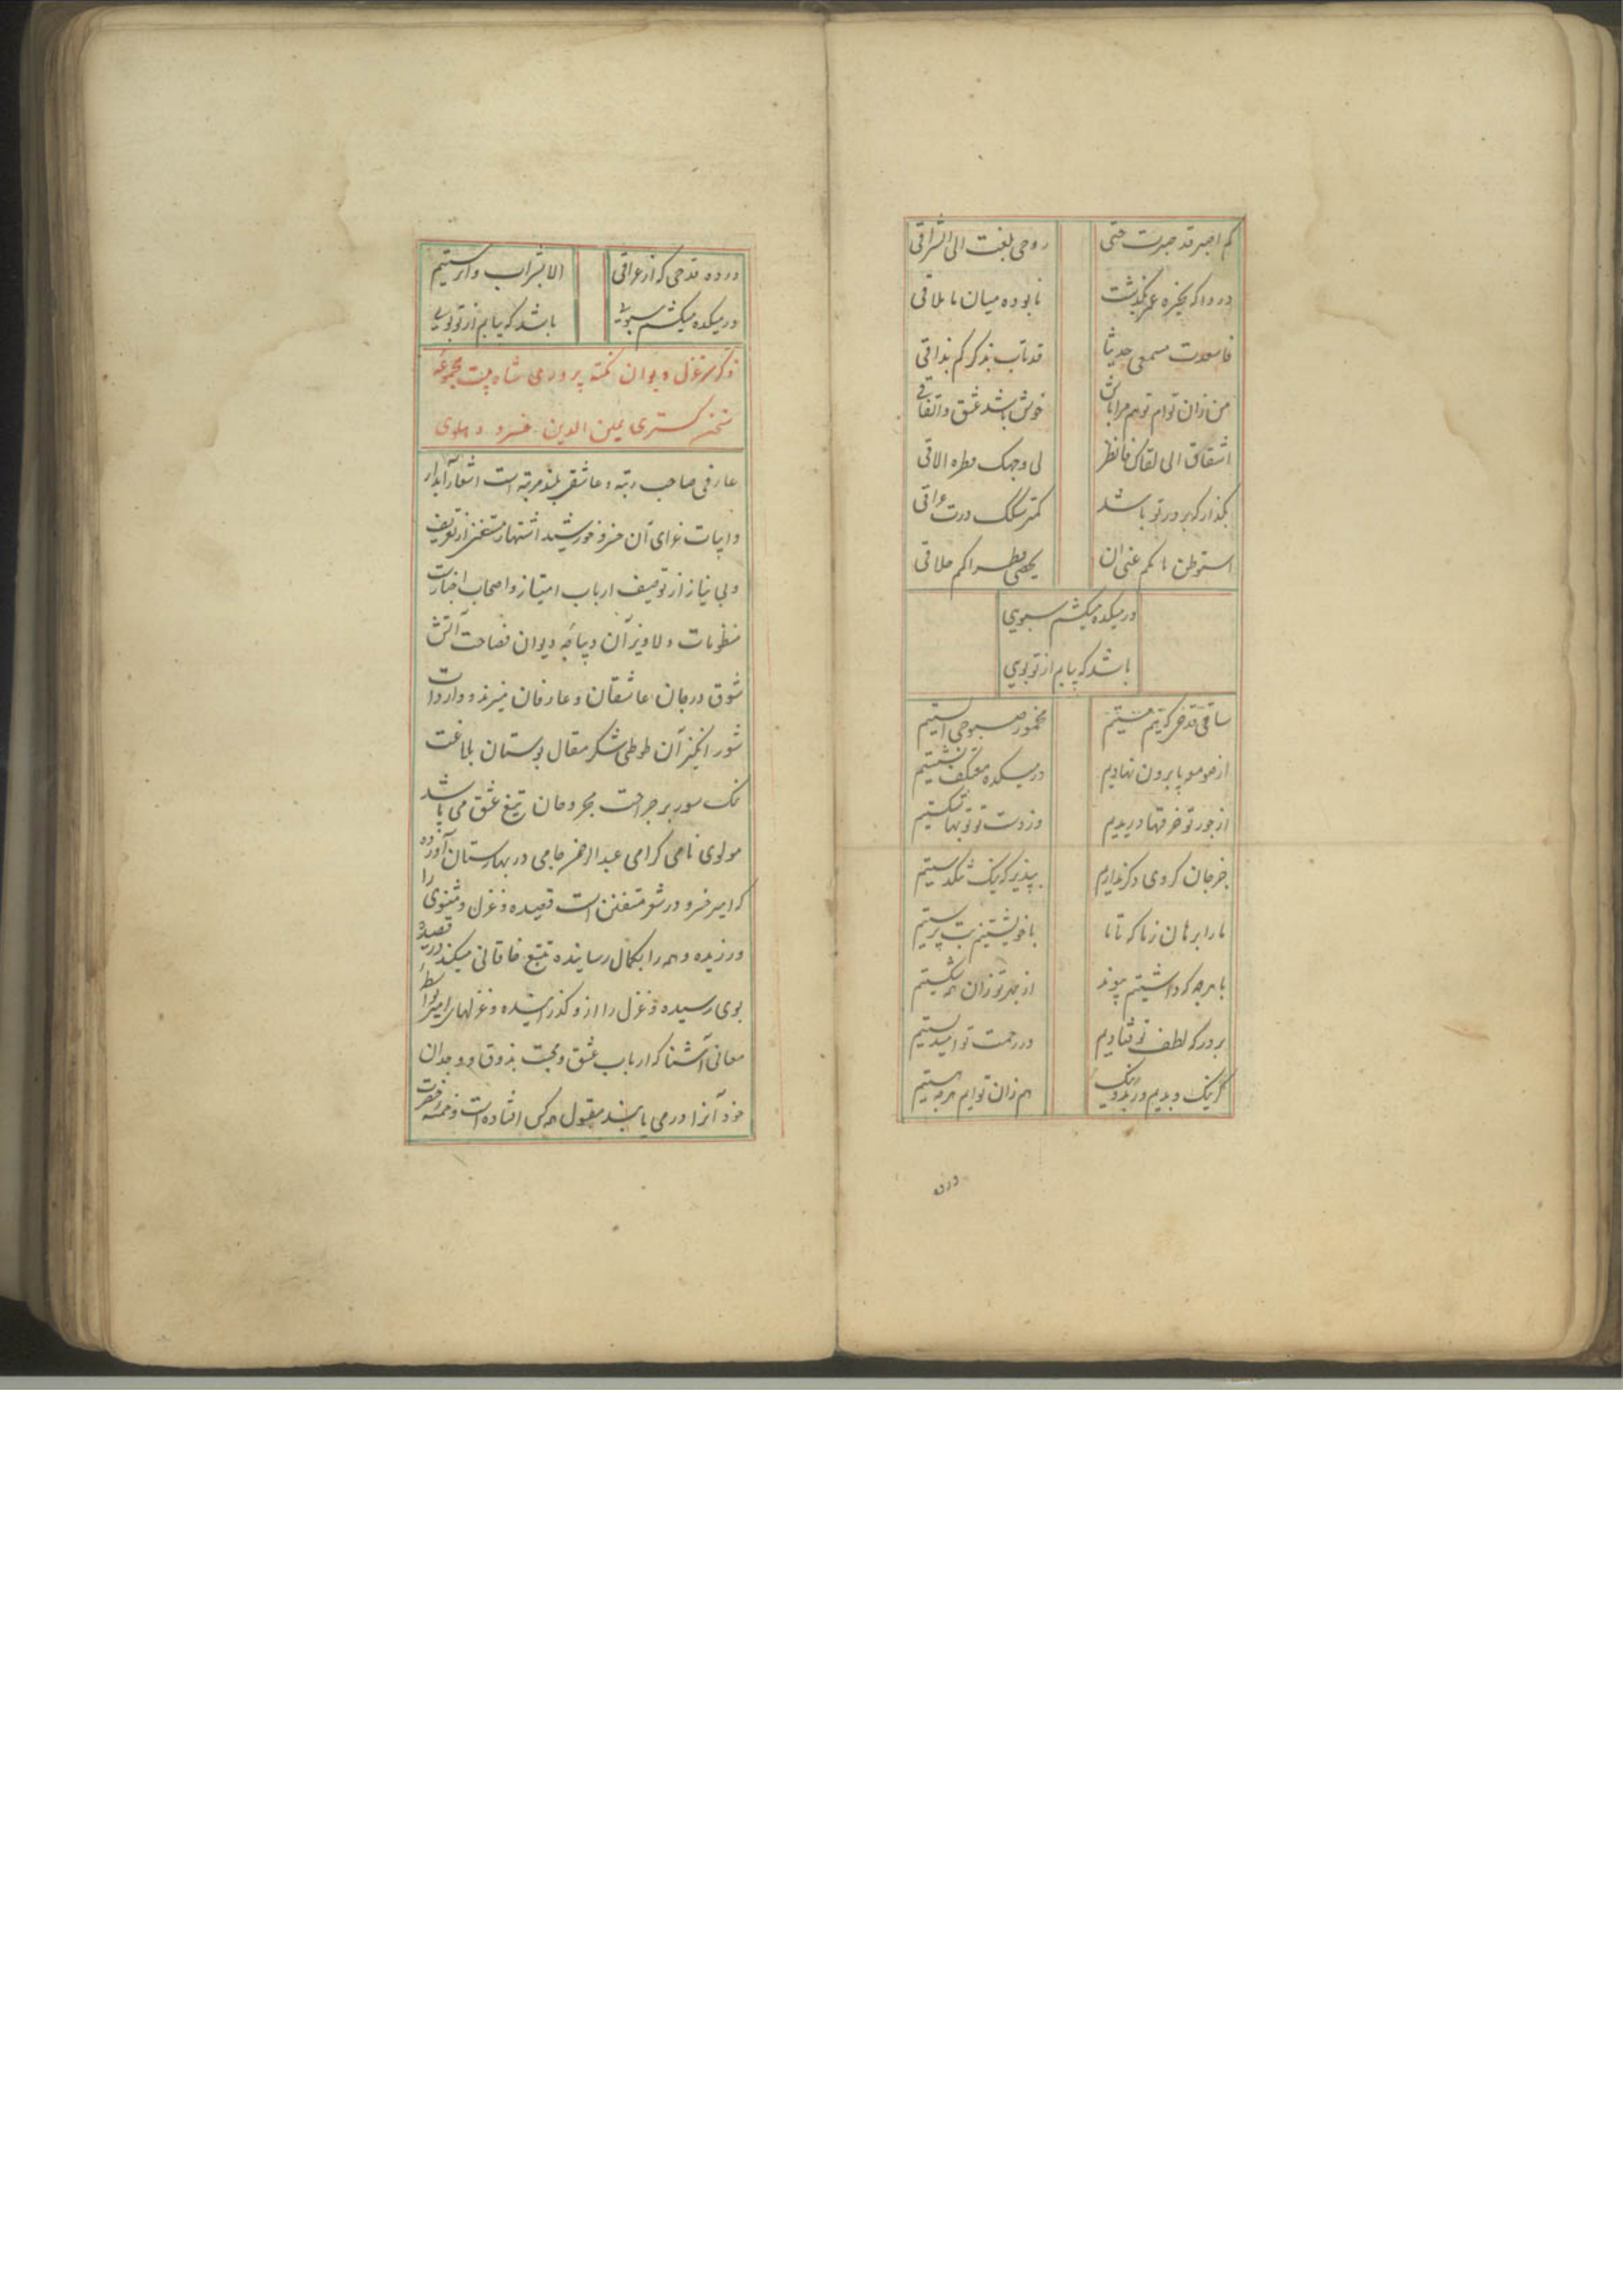 کم اصبر قد صبرت حتی روحی بلغت الی التراقی
دردا که بخیره عمر بگذشت نابوده میان ما تلاقی
حدیثا قد تاب بذکرکم مذاقی
من زان توام تو هم مرا باش خوش باشد عشق و اتفاقی
اشتاق الی لقاک فانظر لی وجهک نظره الاقی
بگذار که بر در تو باشد کمتر سگک درت عراقی
استوطن بابکم عسی ان
در میکده میکشم سبویی
باشد که بیابم از تو بویی
ساقی قدحی که نیم مستیم مخمور صبوحی الستیم
از صومعه پا برون نهادیم در میکده معتکف نشستیم
از جور تو خرقها دریدیم وز دست تو توبها شکستیم
جز جان گروی دگر نداریم بپذیر که نیک تنگدستیم
ما را برهان ز ما که تا ما با خویشتنیم بت پرستیم
با هرچه که داشتیم پیوند از بهر تو زان همه گسستیم
بر درگه لطف تو فتادیم در رحمت تو امید بستیم
گر نیک و بدیم ور بد و نیک هم زان توایم هرچه هستیم
درده
درده قدحی که از عراقی الا بشراب وا نرستیم
در میکده میکشم سبویی باشد که بیابم از تو بویی
ذکر سر غزل دیوان نکته پروری شاه بیت مجموعه
سخن گستری یمین الدین خسرو دهلوی
عارفی صاحب رتبه و عاشقی بلند مرتبه است اشعار آبدار
و ابیات غرای آن خسرو خورشید اشتهار مستغنی از تعریف
و بی نیاز از توصیف ارباب امتیاز و اصحاب اختیارست
منظومات دلاویز آن دیباچه دیوان فصاحت آتش
شوق در جان عاشقان و عارفان میزند و واردات
شور انگیز آن طوطی شکر مقال بوستان بلاغت
نمک سور بر جراحت مجروحان تیغ عشق می پاشد
مولوی نامی گرامی عبدالرحمن جامی در بهارستان آورده
که امیر خسرو در شعر متفنن است قصیده و غزل و مثنوی را
ورزیده و همه را بکمال رسانیده تتبع خاقانی میکند در قصیده
بوی رسیده و غزل را از و گذرانیده و غزلهای امیر بواسطه
معانی آشنا که ارباب عشق و محبت بذوق و وجدان
خود آنرا درمی یابند مقبول همه کس افتاده است و خمسه